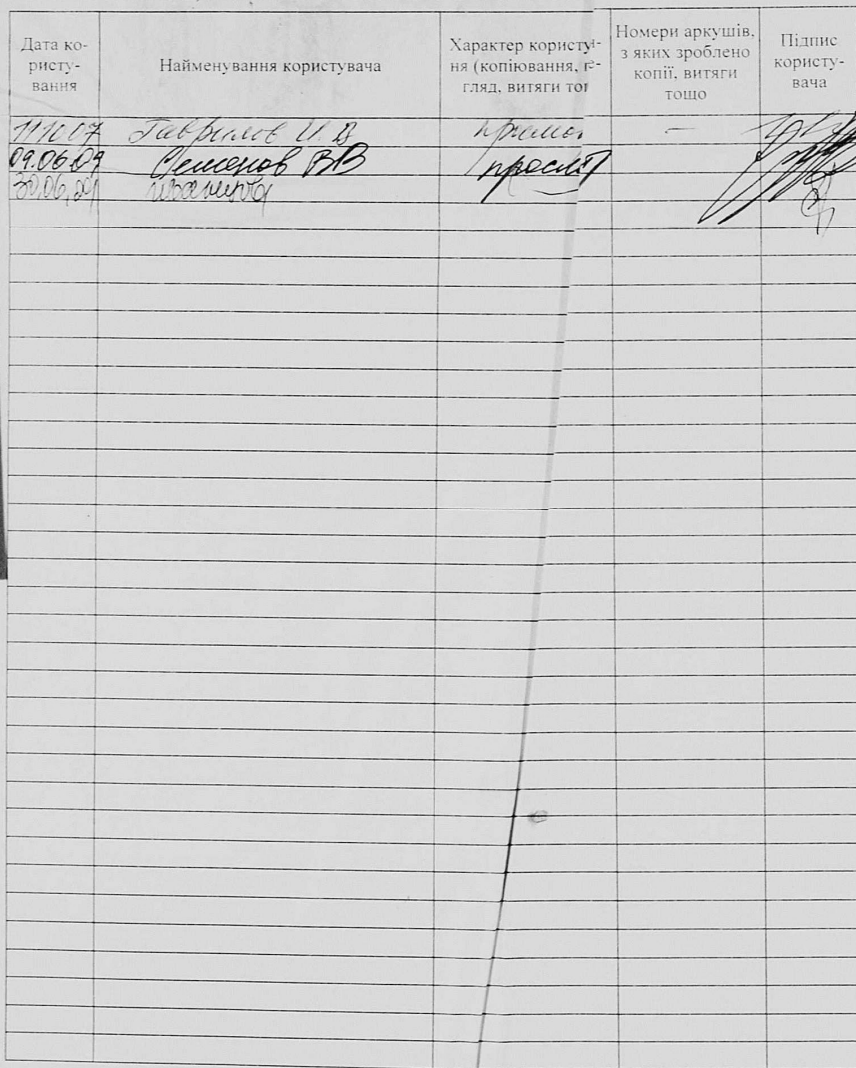 Дата ко-
ристу-
вання
Найменування користувача
Характер користу-
ня (копіювання,
гляд, витяги то
Номери аркушів,
з яких зроблено
копії, витяги
тощо
Підпис
користу-
вача
111007 Гаврилов И. В —
09.06.09 Семенов ВВ
30.06.09